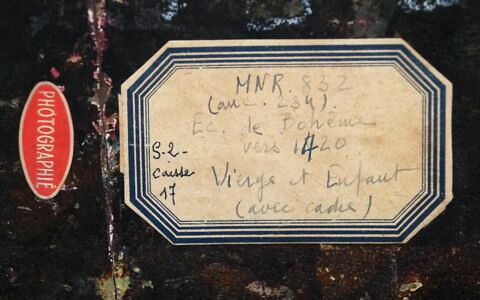 PHOTOGRAPHIÉ
MNR. 832
(anc. 234).
Ec. de Bohême
vers 1420
S-2-
Caisse
17
Vierge et Enfant
(avec cadre)